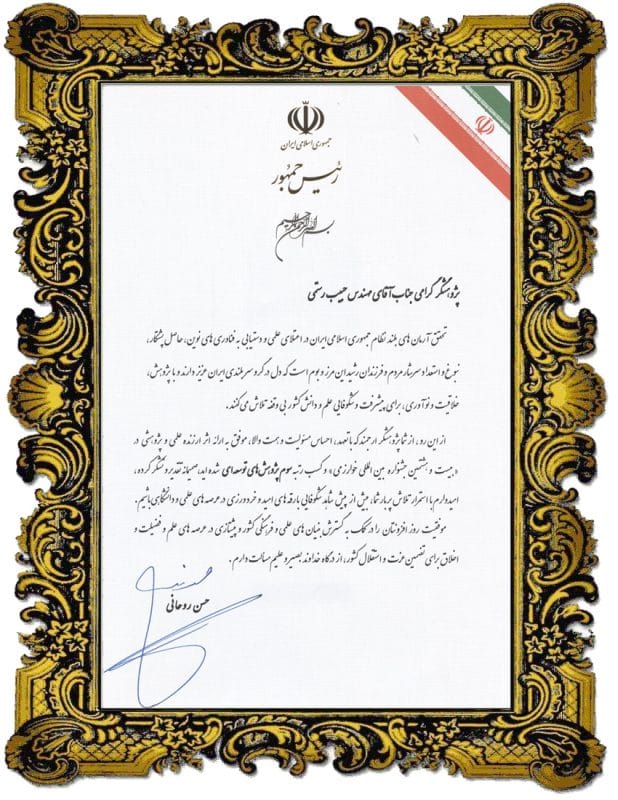 جمهوری اسلامی ایران
رئیس جمهور
بسم الله الرحمن الرحیم
پژوهشگر گرامی جناب آقای مهندس حبیب رستمی
تحقق آرمان های بلند نظام جمهوری اسلامی ایران در اعتلای علمی و دستیابی به فناوری های نوین، حاصل پشتکار،
نبوغ و استعداد سرشار مردم و فرزندان رشید این مرز و بوم است که دل در گرو سربلندی ایران عزیز دارند و با پژوهش،
خلاقیت و نوآوری، برای پیشرفت و شکوفائی علم و دانش کشور بی وقفه تلاش می کنند.
از این رو، از شما پژوهشگر ارجمند که با تعهد، احساس مسئولیت و همت والا، موفق به ارائه اثر ارزنده علمی و پژوهشی در
«بیست و هشتمین جشنواره بین المللی خوارزمی» و کسب رتبه سوم پژوهش های توسعه ای شده اید، صمیمانه تقدیر و تشکر کرده،
امیدوارم با استمرار تلاش پربار شما، بیش از پیش شاهد شکوفایی بارقه های امید و خردورزی در عرصه های علمی و دانشگاهی باشیم.
موفقیت روز افزونتان را در کمک به گسترش بنیان های علمی و فرهنگی کشور و پیشتازی در عرصه های علم و فضیلت و
اخلاق برای تضمین عزت و استقلال کشور، از درگاه خداوند بصیر و علیم مسالت دارم.
حسن روحانی